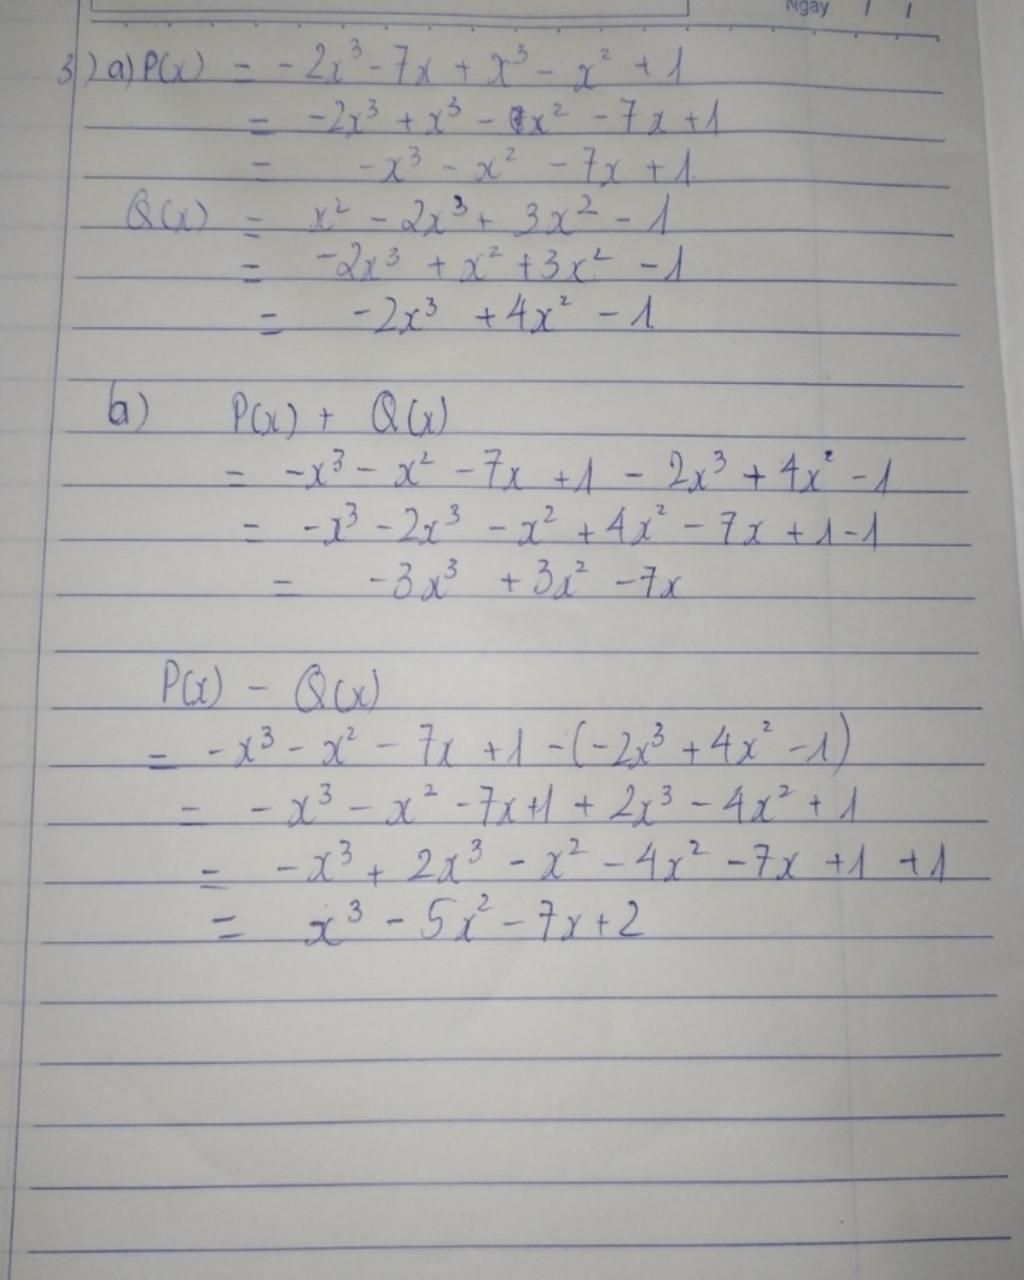 Ngày / /
3) a) P(x) = -2x³ - 7x + x³ - x² + 1
= -2x³ + x³ - x² - 7x + 1
= -x³ - x² - 7x + 1
Q(x) = x² - 2x³ + 3x² - 1
= -2x³ + x² + 3x² - 1
= -2x³ + 4x² - 1
b) P(x) + Q(x)
= -x³ - x² - 7x + 1 - 2x³ + 4x² - 1
= -x³ - 2x³ - x² + 4x² - 7x + 1 - 1
= -3x³ + 3x² - 7x
P(x) - Q(x)
= -x³ - x² - 7x + 1 - (-2x³ + 4x² - 1)
= -x³ - x² - 7x + 1 + 2x³ - 4x² + 1
= -x³ + 2x³ - x² - 4x² - 7x + 1 + 1
= x³ - 5x² - 7x + 2